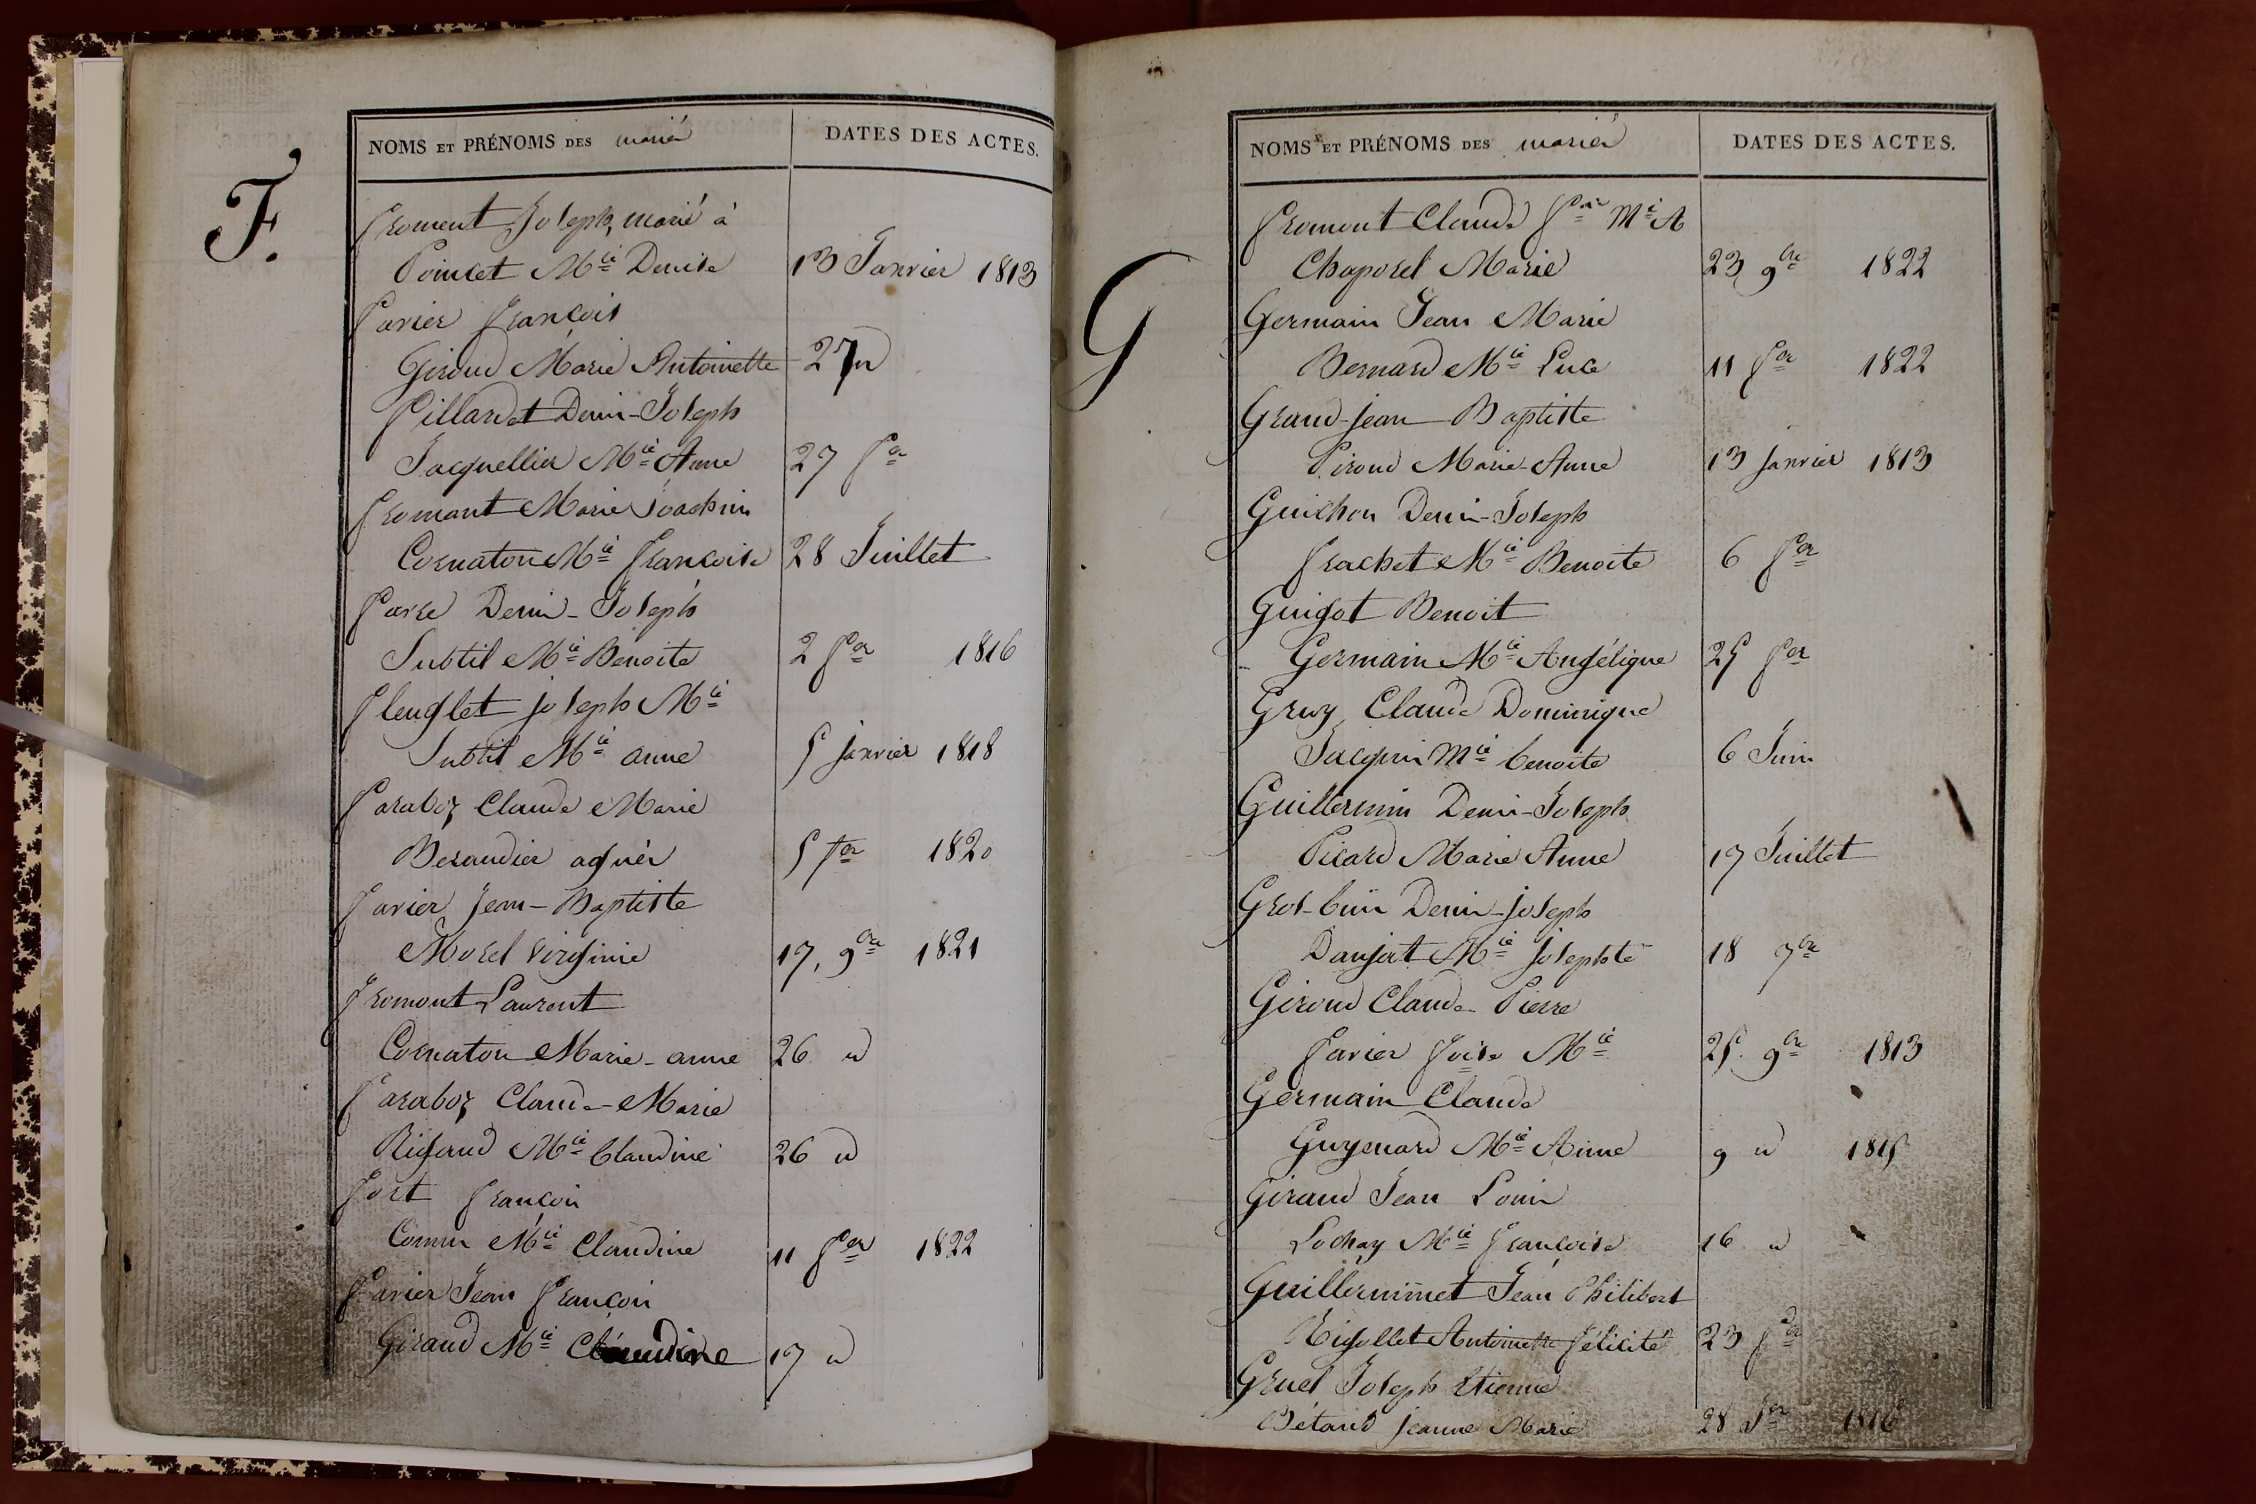 NOMS ET PRÉNOMS DES mariés DATES DES ACTES.
F.
froment Joseph, marié à
Poincet Mie Denise 13 Janvier 1813
favier françois
Giroud Marie Antoinette 27 "
fillardet Denis-Joseph
Jacquellier Mie Anne 27 fer
fromont Marie Joachim
Cornaton Mie françoise 28 Juillet
farre Denis-Joseph
Subtil Mie Benoite 2 fer 1816
flenglet joseph Mie
Subtil Mie anne 5 janvier 1818
faraboz Claude Marie
Beraudier agnès 5 fer 1820
favier Jean-Baptiste
Morel Virginie 17, 9bre 1821
fromont Laurent
Cornaton Marie-anne 26 "
faraboz Claude-Marie
Rigaud Mie Claudine 26 "
fort françois
Mie Claudine 11 fer 1822
favier Jean françois
Giraud Mie Claudine 17 "
NOMS ET PRÉNOMS DES mariés DATES DES ACTES.
fromont Claude fois Mié A
Chaporel Marie 23 9bre 1822
G
Germain Jean Marie
Bernard Mie Luce 11 fer 1822
Grand-jean Baptiste
Giroud Marie-Anne 13 janvier 1813
Guichon Denis-Joseph
frachet Mie Benoite 6 fer
Guigot Benoit
Germain Mie Angélique 25 fer
Gruy Claude Dominique
Jacquin Mie benoite 6 Juin
Guillermin Denis-Joseph
Picard Marie Anne 17 Juillet
Gros-buis Denis-joseph
Danjat Mie josephte 18 7bre
Giroud Claude-Pierre
favier foise Mie 25. 9bre 1813
Germain Claude
Guyenard Mie Aimé 9 " 1815
Giraud Jean Louis
Lochay Mie françoise 16 "
Guillerminet Jean Philibert
Rigollet Antoinette félicité 23 fer
Gruel Joseph Etienne
Bétand jeanne Marie 28 fer 1816